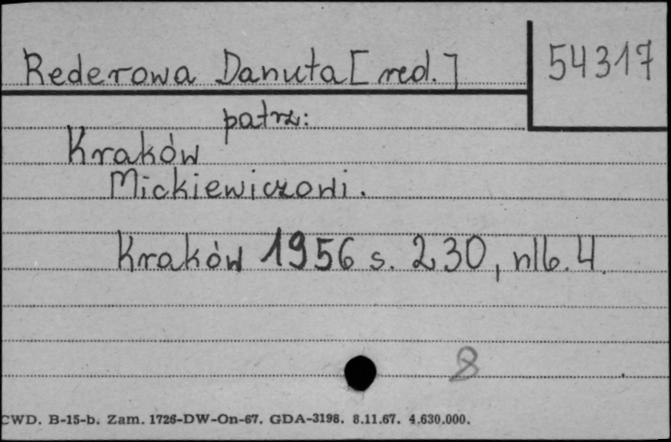 Rederowa Danuta [red.]
54317
patrz:
Kraków
Mickiewiczowi.
Kraków 1956 s. 230, nlb. 4
8
CWD. B-15-b. Zam. 1726-DW-On-67. GDA-3198. 8.11.67. 4.630.000.